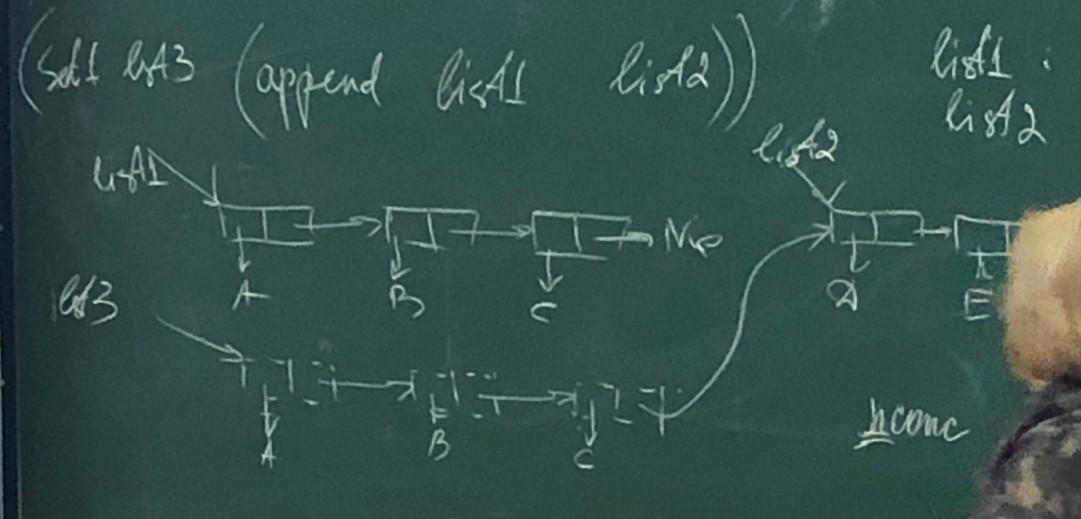 (setf list3 (append list1 list2))
list1 :
list2
list2
list1
Nil
A B C
D E
list3
A B C
nconc